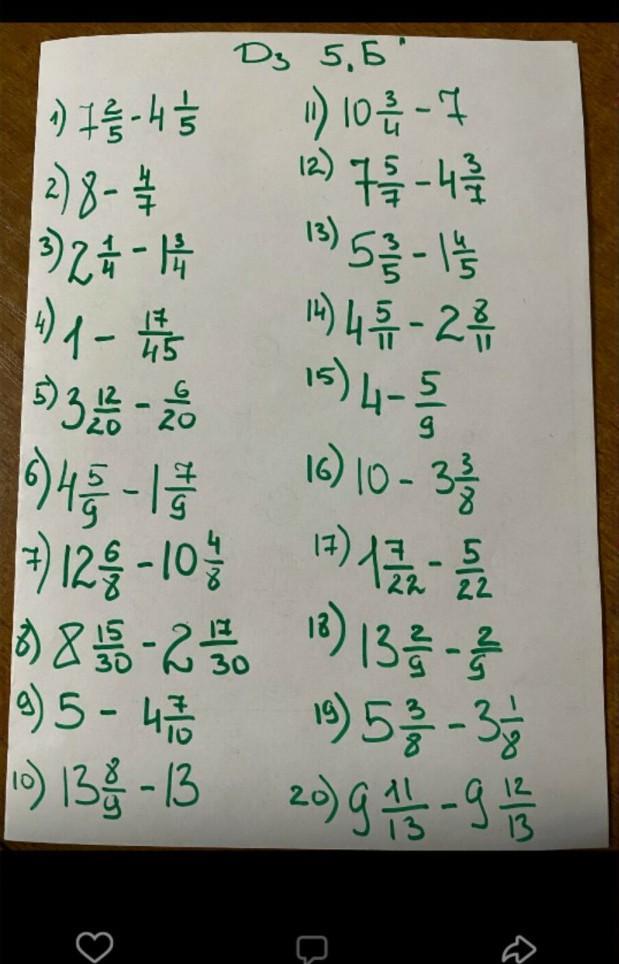 Дз 5,Б
1) 7 2/5 - 4 1/5
2) 8 - 4/7
3) 2 1/4 - 1 3/4
4) 1 - 17/45
5) 3 12/20 - 6/20
6) 4 5/9 - 1 7/9
7) 12 6/8 - 10 4/8
8) 8 15/30 - 2 17/30
9) 5 - 4 7/10
10) 13 8/9 - 13
11) 10 3/4 - 7
12) 7 5/7 - 4 3/7
13) 5 3/5 - 1 4/5
14) 4 5/11 - 2 8/11
15) 4 - 5/9
16) 10 - 3 3/8
17) 1 7/22 - 5/22
18) 13 2/9 - 2/9
19) 5 3/8 - 3 1/8
20) 9 11/13 - 9 12/13